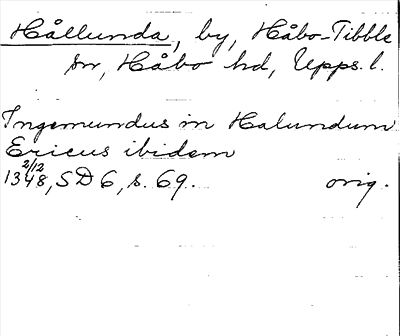 Hållunda, by, Håbo-Tibble
sn, Håbo hd, Upps. l.
Ingemundus in Halundum
Ericus ibidem
2/12
1348, SD 6, s. 69. orig.